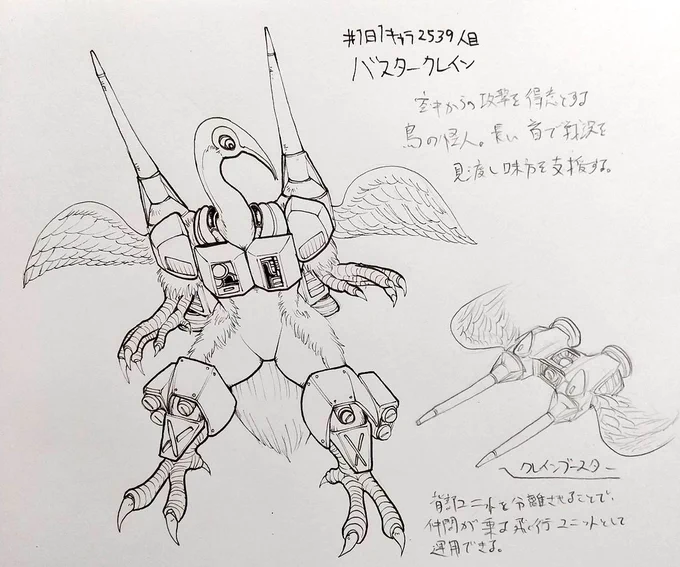 #1日1キャラ2539人目
バスタークレイン
空中からの攻撃を得意とする
鳥の怪人。長い首で戦況を
見渡し味方を支援する。
クレインブースター
背部ユニットを分離させることで、
仲間が乗る飛行ユニットとして
運用できる。